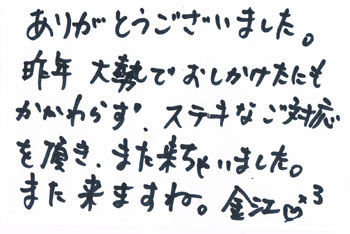 ありがとうございました。
昨年 大勢で おしかけたにも
かかわらず、ステキなご対応
を頂き、また来ちゃいました。
また来ますね。金江♡×3